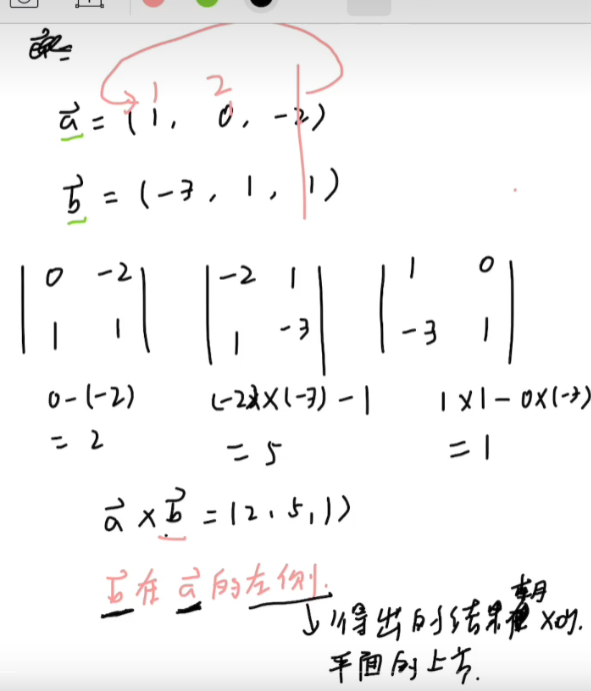 1 2
a⃗ = (1, 0, -2)
b⃗ = (-3, 1, 1)
| 0 -2 | | -2 1 | | 1 0 |
| 1 1 | | 1 -3 | | -3 1 |
0-(-2) (-2)×(-3)-1 1×1-0×(-3)
= 2 = 5 = 1
a⃗ × b⃗ = (2, 5, 1)
b⃗ 在 a⃗ 的左侧.
↓得出的结果朝 xoy.
平面的上方.